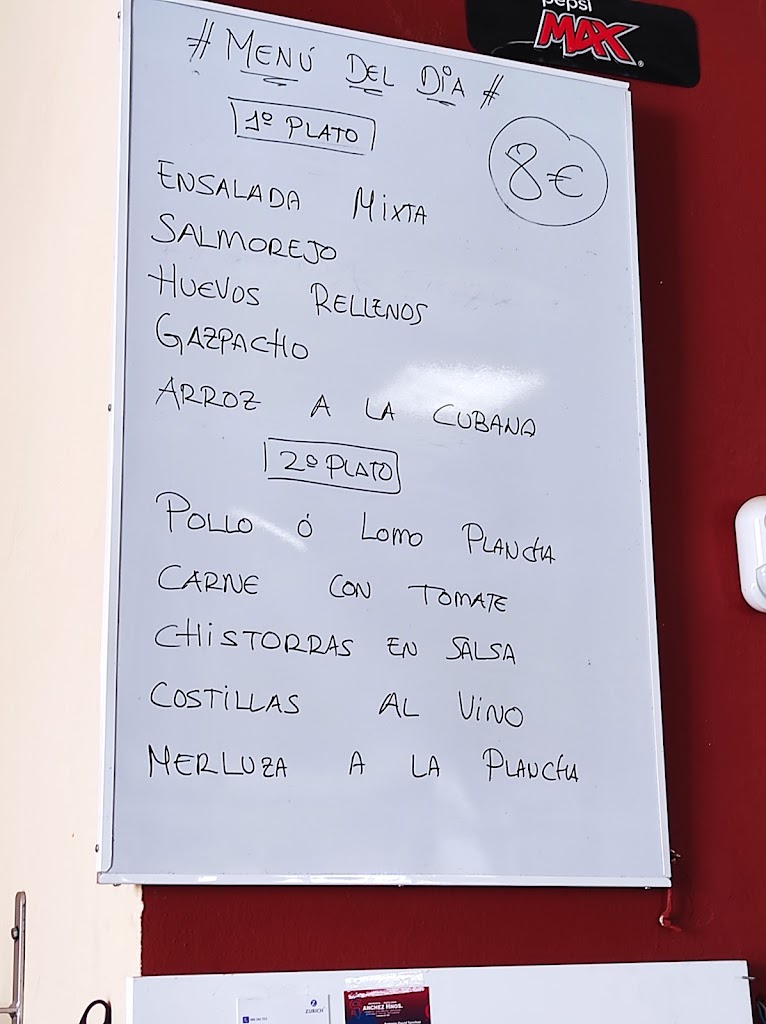 pepsi
MAX
# MENÚ DEL DIA #
1º PLATO
8€
ENSALADA MIXTA
SALMOREJO
HUEVOS RELLENOS
GAZPACHO
ARROZ A LA CUBANA
2º PLATO
POLLO Ó LOMO PLANCHA
CARNE CON TOMATE
CHISTORRAS EN SALSA
COSTILLAS AL VINO
MERLUZA A LA PLANCHA
ZURICH
ANCHEZ HNOS.